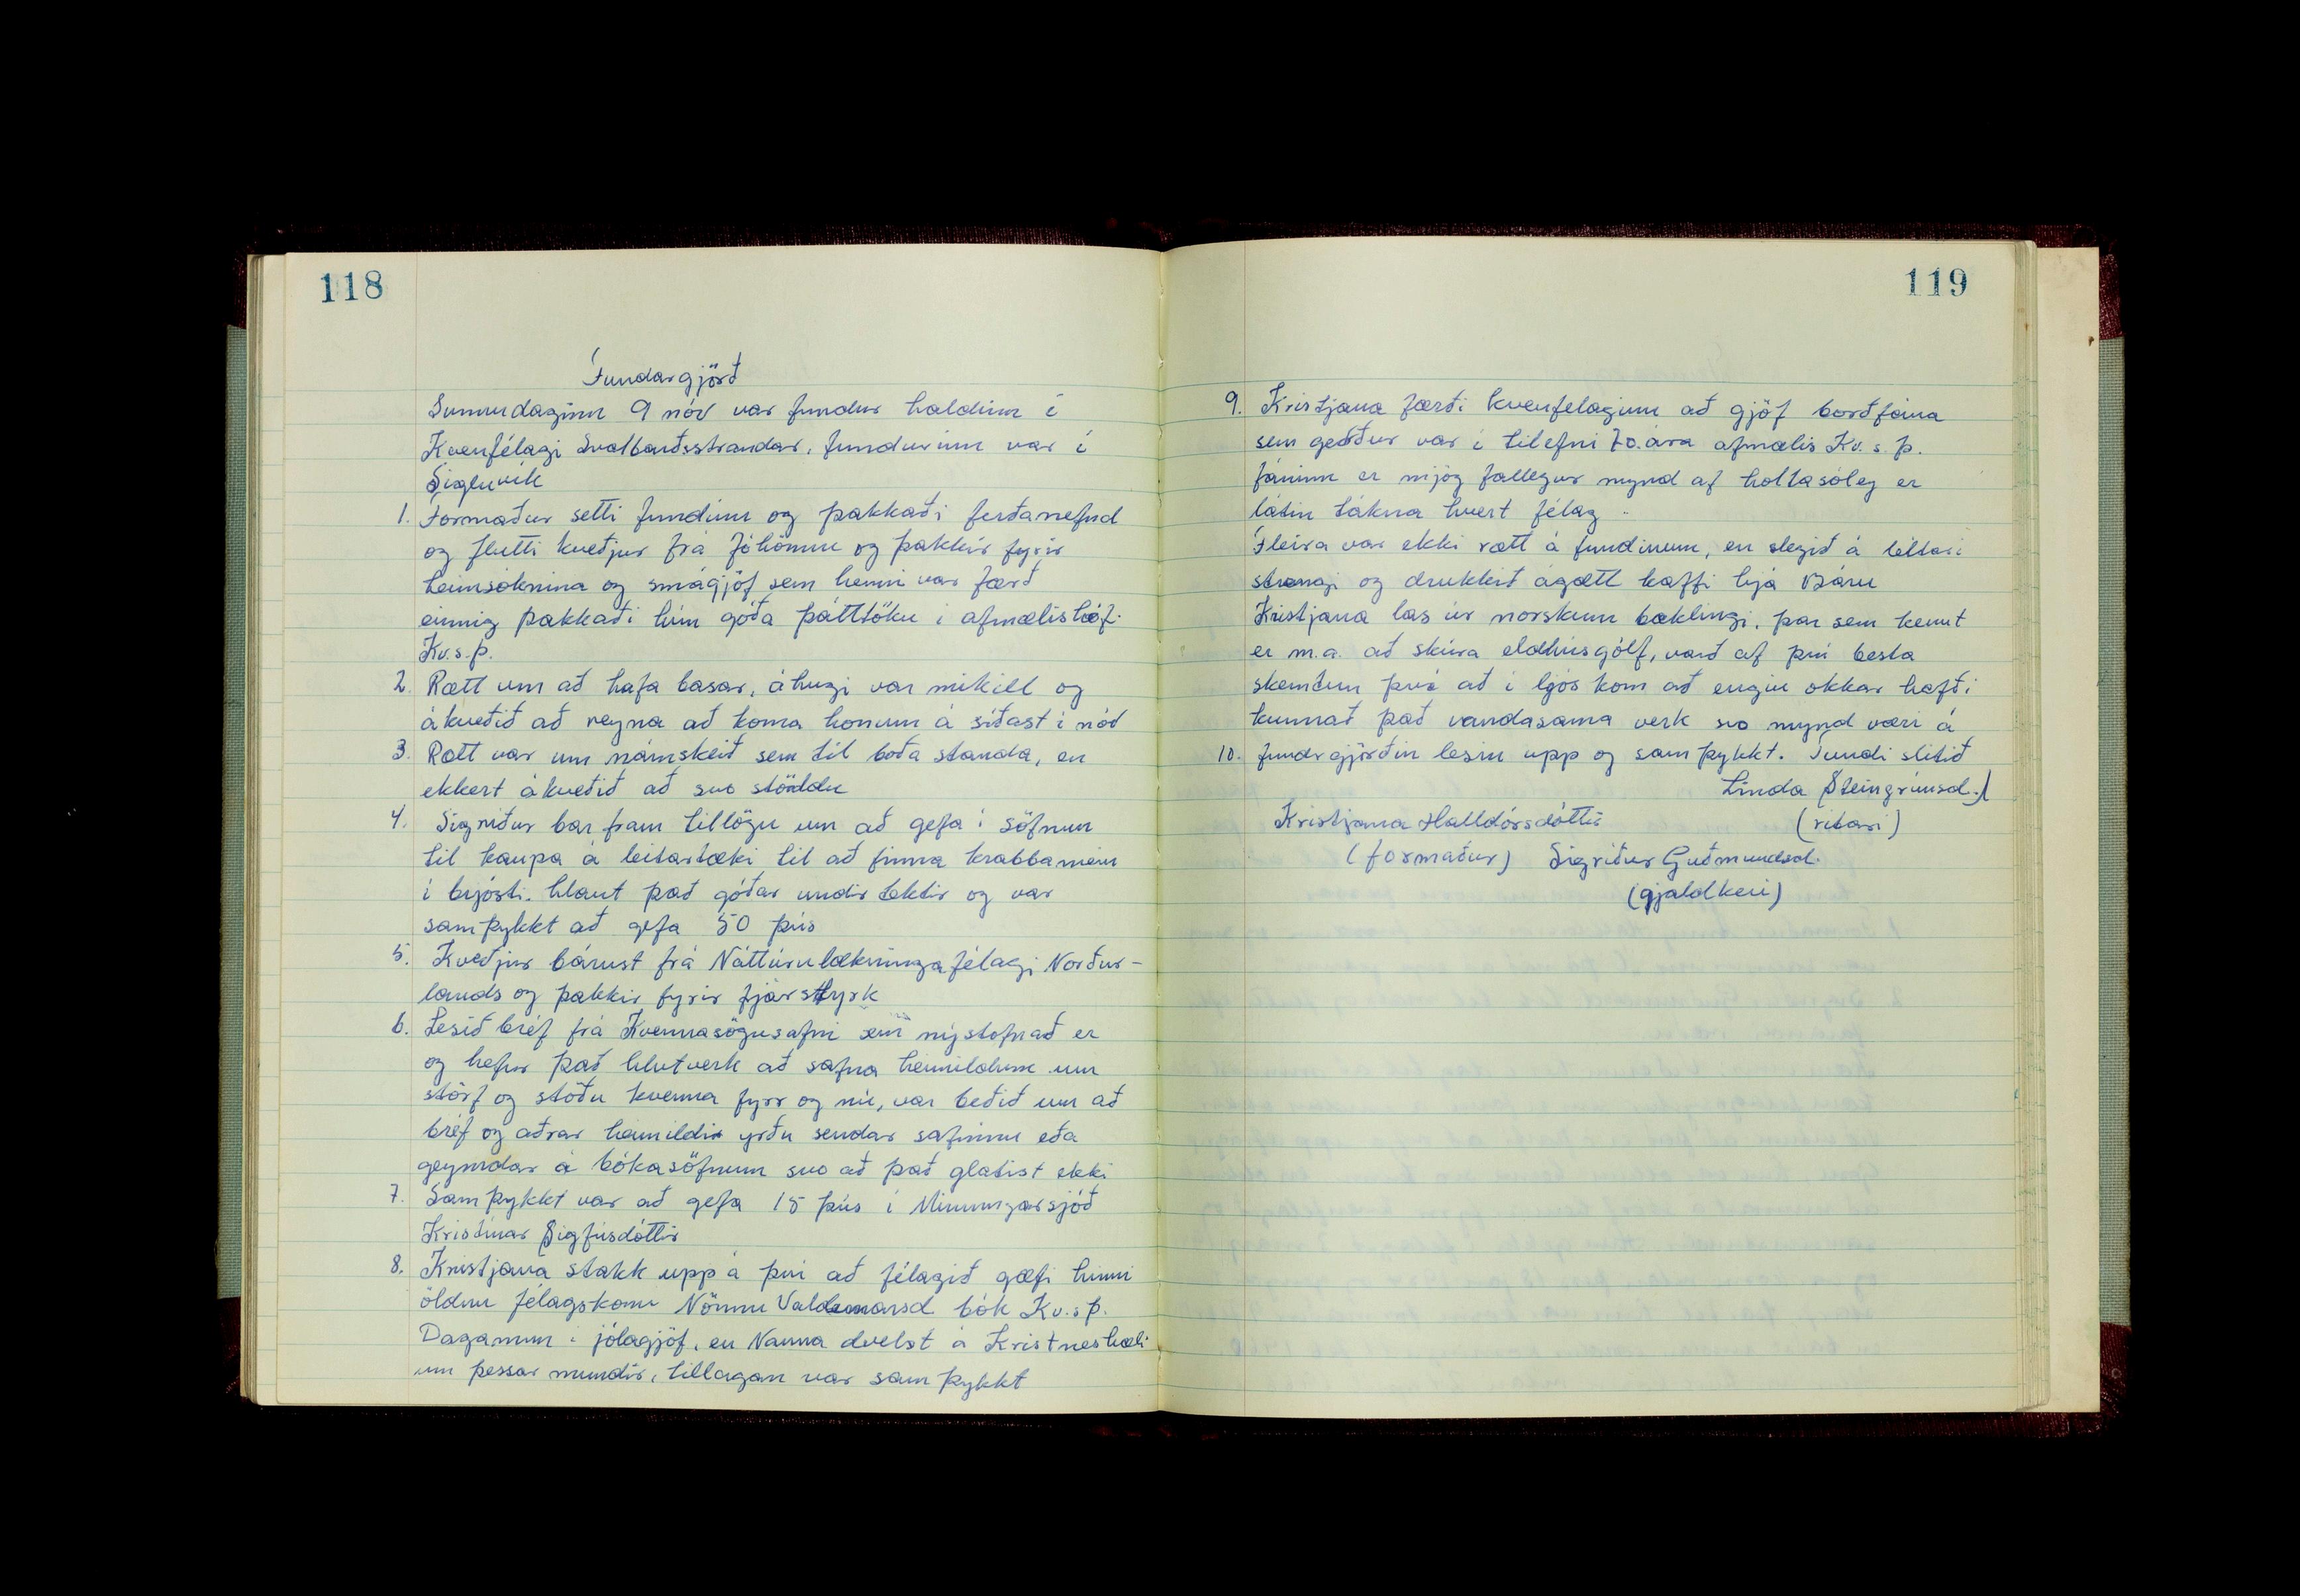 118
Fundargjörð
Sunnudaginn 9 nóv var fundur haldinn í
Kvenfélagi Svalbarðsstrandar, fundurinn var í
Sigluvík
1. Formaður setti fundinn og þakkaði ferðanefnd
og flutti kveðjur frá Jóhönnu og þakkir fyrir
heimsóknina og smágjöf sem henni var færð
einnig þakkaði hún góða þátttöku í afmælishóf.
Kv.s.þ.
2. Rætt um að hafa basar, áhugi var mikill og
ákveðið að reyna að koma honum á síðast í nóv
3. Rætt var um námskeið sem til boða standa, en
ekkert ákveðið að svo stöddu
4. Sigríður bar fram tillögu um að gefa í söfnun
til kaupa á leitartæki til að finna krabbamein
í brjósti. hlaut það góðar undirtektir og var
samþykkt að gefa 50 þús
5. Kveðjur bárust frá Náttúrulækningafélagi Norður-
lands og þakkir fyrir fjárstyrk
6. Lesið bréf frá Kvennasögusafni sem nýstofnað er
og hefur það hlutverk að safna heimildum um
störf og stöðu kvenna fyrr og nú, var beðið um að
bréf og aðrar heimildir yrðu sendar safninu eða
geymdar á bókasöfnum svo að það glatist ekki
7. Samþykkt var að gefa 15 þús í Minningarsjóð
Kristínar Sigfúsdóttir
8. Kristjana stakk uppá því að félagið gæfi hinni
öldnu félagskonu Nönnu Valdemarsd bók Kv.s.þ.
Dagamun í jólagjöf, en Nanna dvelst á Kristneshæli
um þessar mundir, tillagan var samþykkt
119
9. Kristjana færði kvenfélaginu að gjöf borðfána
sem gerður var í tilefni 70. ára afmælis Kv.s.þ.
fáninn er mjög fallegur mynd af holtasóley er
látin tákna hvert félag.
Fleira var ekki rætt á fundinum, en slegið á léttari
strengi og drukkið ágætt kaffi hjá Báru
Kristjana las úr norskum bæklingi, þar sem kennt
er m.a. að skúra eldhúsgólf, varð af því besta
skemtun því að í ljós kom að engin okkar hafði
kunnað það vandasama verk svo mynd væri á
10. fundrgjörðin lesin upp og samþykkt. Fundi slitið
Linda Steingrímsd.
Kristjana Halldórsdóttir (ritari)
(formaður) Sigríður Guðmundsd.
(gjaldkeri)